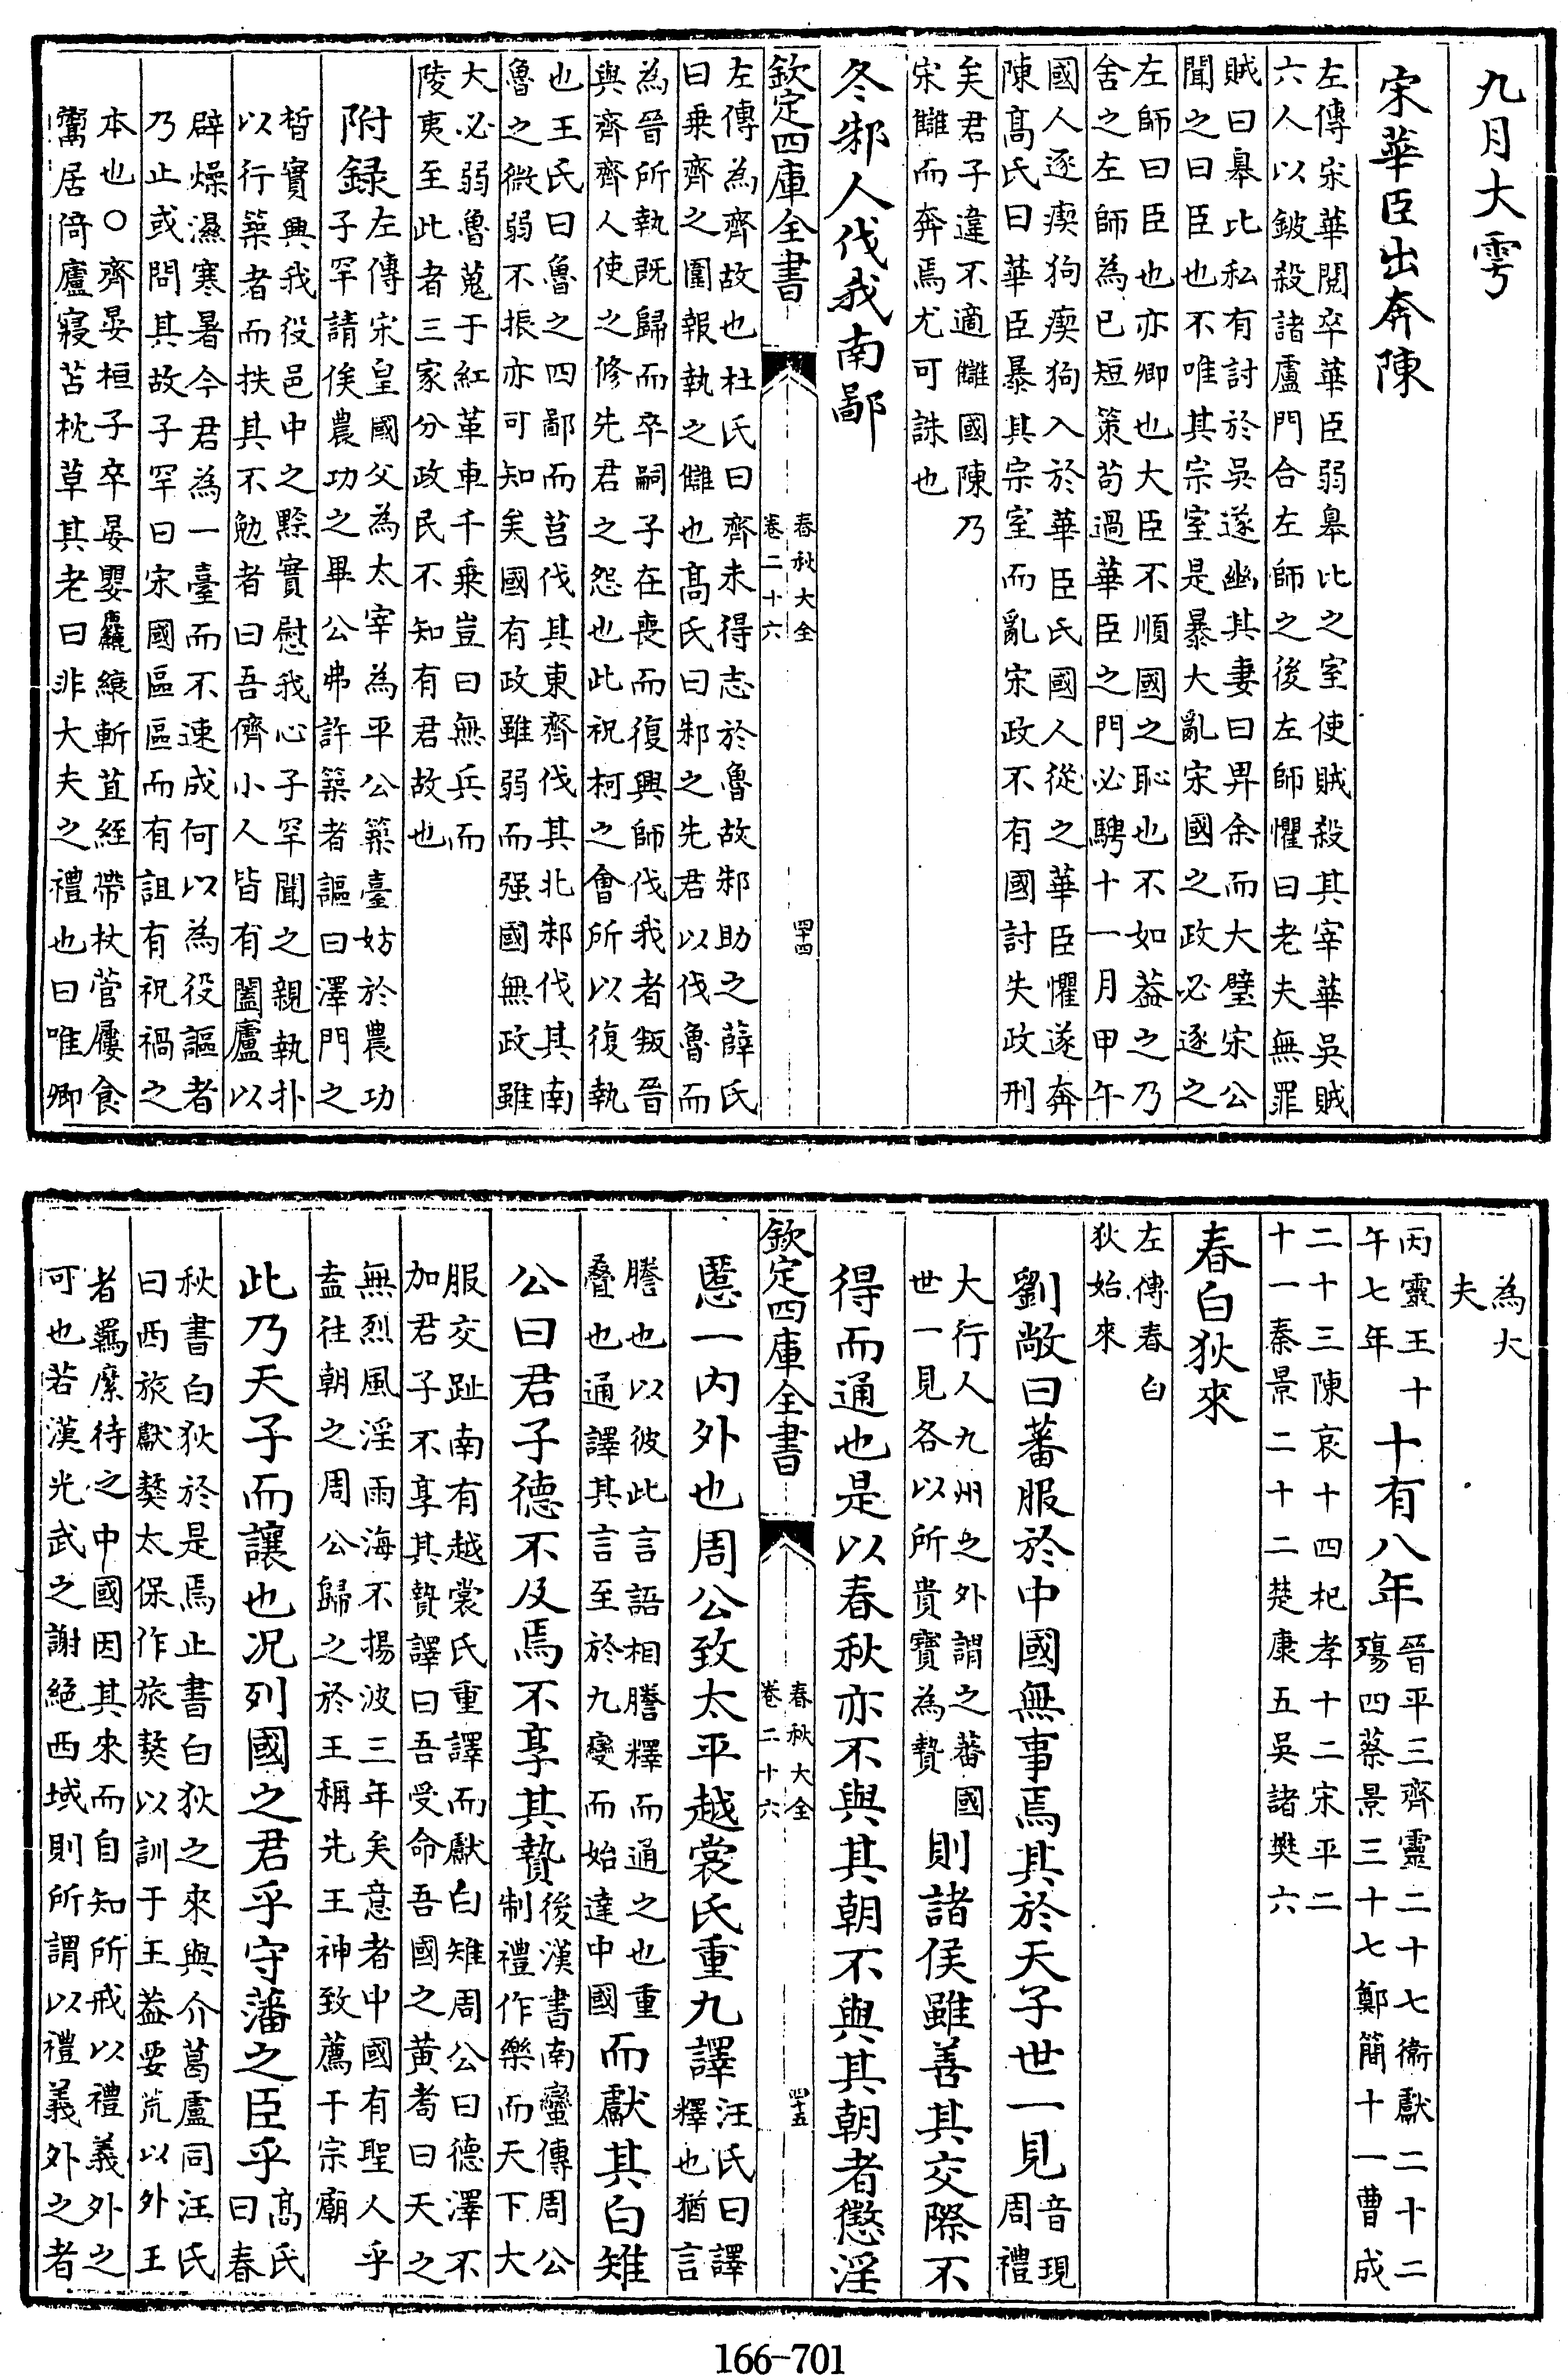 九月大雩
宋華臣出奔陳
左傳宋華閱卒華臣弱臯比之室使賊殺其宰華吳賊
六人以鈹殺諸盧門合左師之後左師懼曰老夫無罪
賊曰臯比私有討於吳遂幽其妻曰畀余而大璧宋公
聞之曰臣也不唯其宗室是暴大亂宋國之政必逐之
左師曰臣也亦卿也大臣不順國之恥也不如蓋之乃
舍之左師為已短策茍過華臣之門必騁十一月甲午
國人逐瘈狗瘈狗入於華臣氏國人從之華臣懼遂奔
陳髙氏曰華臣暴其宗室而亂宋政不有國討失政刑
矣君子違不適讎國陳乃
宋讎而奔焉尤可誅也
冬邾人伐我南鄙
欽定四庫全書
春秋大全
卷二十六
四十四
左傳為齊故也杜氏曰齊未得志於魯故邾助之薛氏
曰乗齊之圍報執之讎也髙氏曰邾之先君以伐魯而
為晉所執既歸而卒嗣子在喪而復興師伐我者叛晉
與齊齊人使之修先君之怨也此祝柯之會所以復執
也王氏曰魯之四鄙而莒伐其東齊伐其北邾伐其南
魯之微弱不振亦可知矣國有政雖弱而强國無政雖
大必弱魯蒐于紅革車千乗豈曰無兵而
陵夷至此者三家分政民不知有君故也
附録左傳宋皇國父為太宰為平公築臺妨於農功
子罕請俟農功之畢公弗許築者謳曰澤門之
晳實興我役邑中之黔實慰我心子罕聞之親執扑
以行築者而抶其不勉者曰吾儕小人皆有闔廬以
辟燥濕寒暑今君為一臺而不速成何以為役謳者
乃止或問其故子罕曰宋國區區而有詛有祝禍之
本也○齊晏桓子卒晏嬰麤縗斬苴絰帶杖菅屨食
鬻居倚廬寢苫枕草其老曰非大夫之禮也曰唯卿
為大
夫
丙靈王十
午七年
十有八年
晉平三齊靈二十七衛獻二十二
殤四蔡景三十七鄭簡十一曹成
二十三陳哀十四杞孝十二宋平二
十一秦景二十二楚康五吳諸樊六
春白狄來
左傳春白
狄始來
劉敞曰蕃服於中國無事焉其於天子世一見音現
周禮
大行人九州之外謂之蕃國
世一見各以所貴寳為贄
則諸侯雖善其交際不
得而通也是以春秋亦不與其朝不與其朝者懲淫
欽定四庫全書
春秋大全
卷二十六
四十五
慝一内外也周公致太平越裳氏重九譯汪氏曰譯
釋也猶言
謄也以彼此言語相謄釋而通之也重
疊也通譯其言至於九變而始達中國
而獻其白雉
公曰君子德不及焉不享其贄後漢書南蠻傳周公
制禮作樂而天下大
服交趾南有越裳氏重譯而獻白雉周公曰德澤不
加君子不享其贄譯曰吾受命吾國之黄耇曰天之
無烈風淫雨海不揚波三年矣意者中國有聖人乎
盍往朝之周公歸之於王稱先王神致薦于宗廟
此乃天子而讓也况列國之君乎守藩之臣乎髙氏
曰春
秋書白狄於是焉止書白狄之來與介葛盧同汪氏
曰西旅獻獒太保作旅獒以訓于王葢要荒以外王
者羈縻待之中國因其來而自知所戒以禮義外之
可也若漢光武之謝絕西域則所謂以禮義外之者
166-701